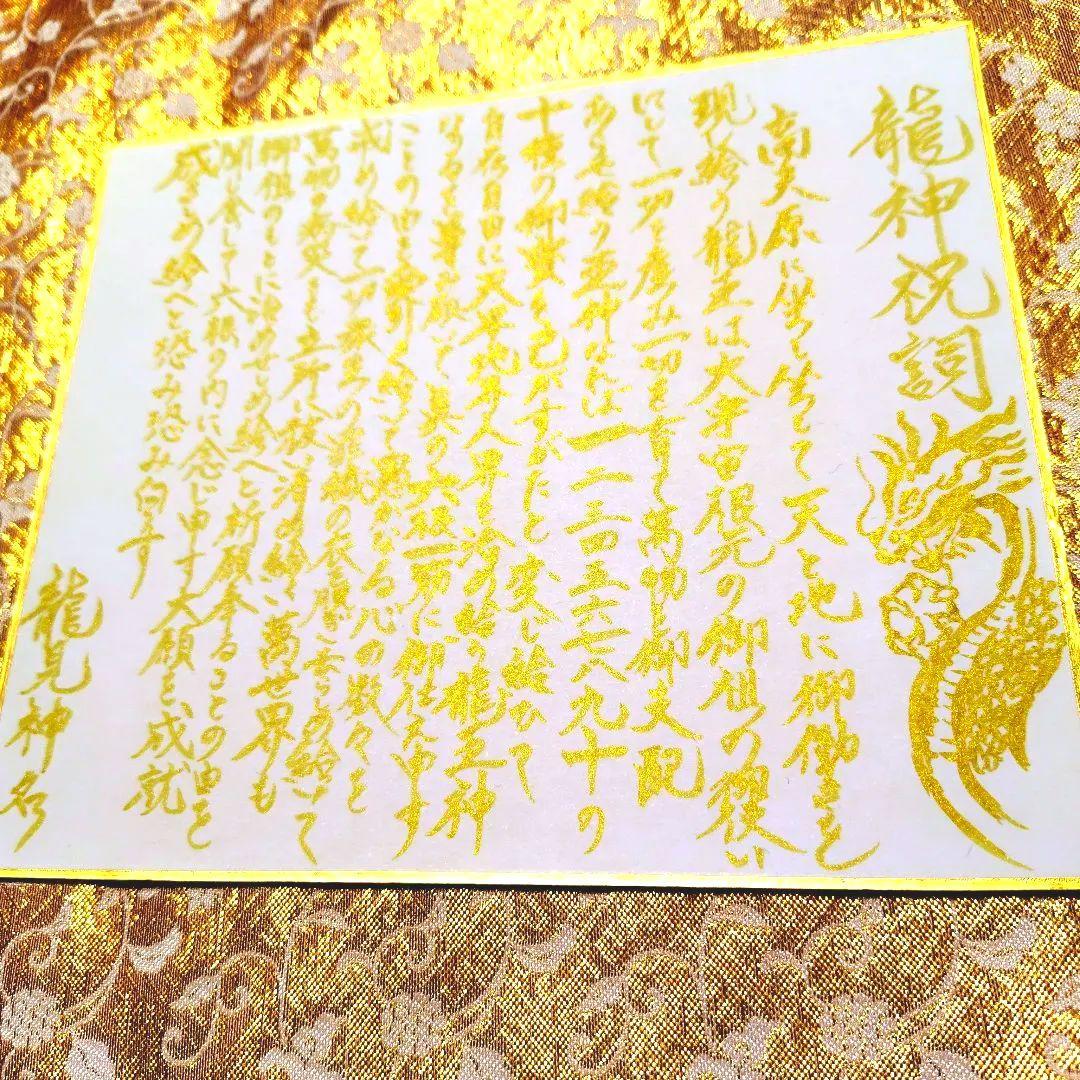 龍神祝詞
高天原に坐し坐して天と地に御働きを
現し給う龍王は大宇宙根元の御祖の御使い
にして一切を産み一切を育て萬物を御支配
あらせ給う王神なれば一二三四五六七八九十の
十種の御寶を己がすがたと変じ給ひて
自在自由に天界地界人界を治め給う龍王神
なるを尊み敬いて真の六根一筋に御仕え申す
ことの由を受引き給いて愚かなる心の数々を
戒め給いて一切衆生の罪穢の衣を脱ぎさらしめ給いて
萬物の病災をも立所に祓い清め給い萬世界も
御祖のもとに治めせしめ給へと祈願奉ることの由を
聞食して六根の内に念じ申す大願を成就
成さしめ給へと恐み恐み白す
龍見神名